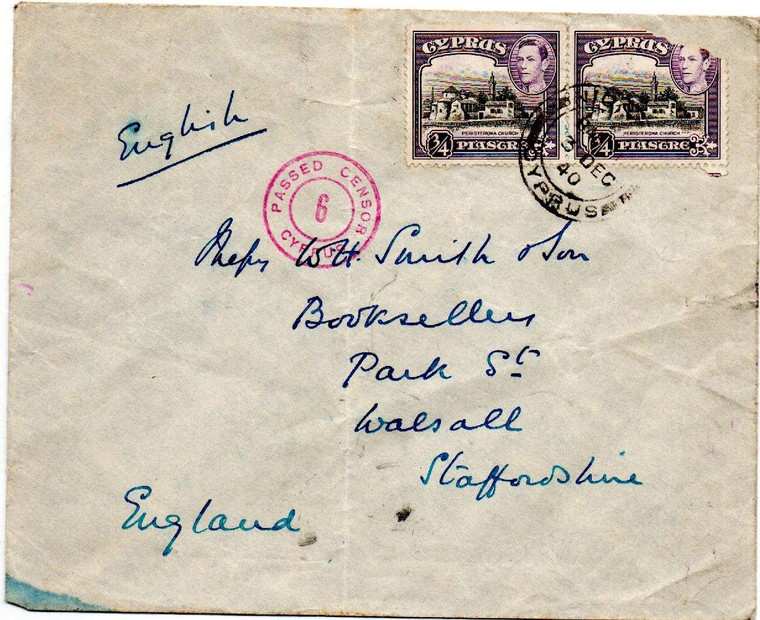 CYPRUS
PERISTERONA CHURCH
3/4 PIASTRE
CYPRUS
PERISTERONA CHURCH
3/4 PIASTRE
DEC
40
CYPRUS
English
PASSED CENSOR
6
CYPRUS
W H. Smith & Son
Booksellers
Park St
Walsall
Staffordshire
England